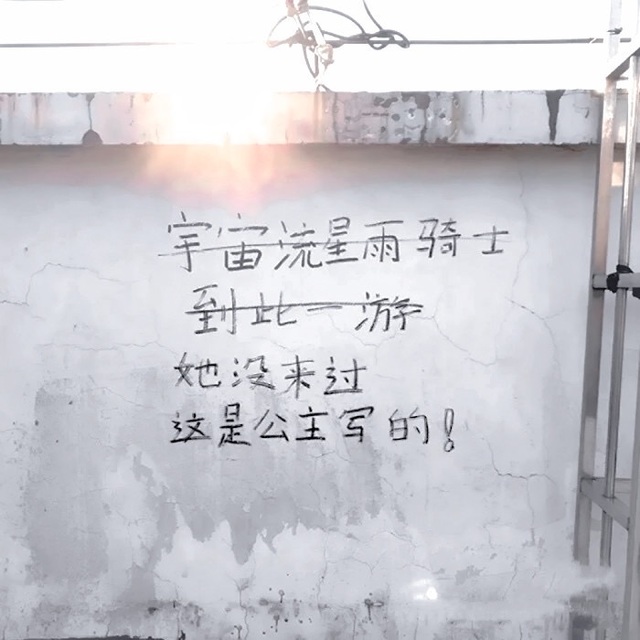 宇宙流星雨骑士
到此一游
她没来过
这是公主写的!